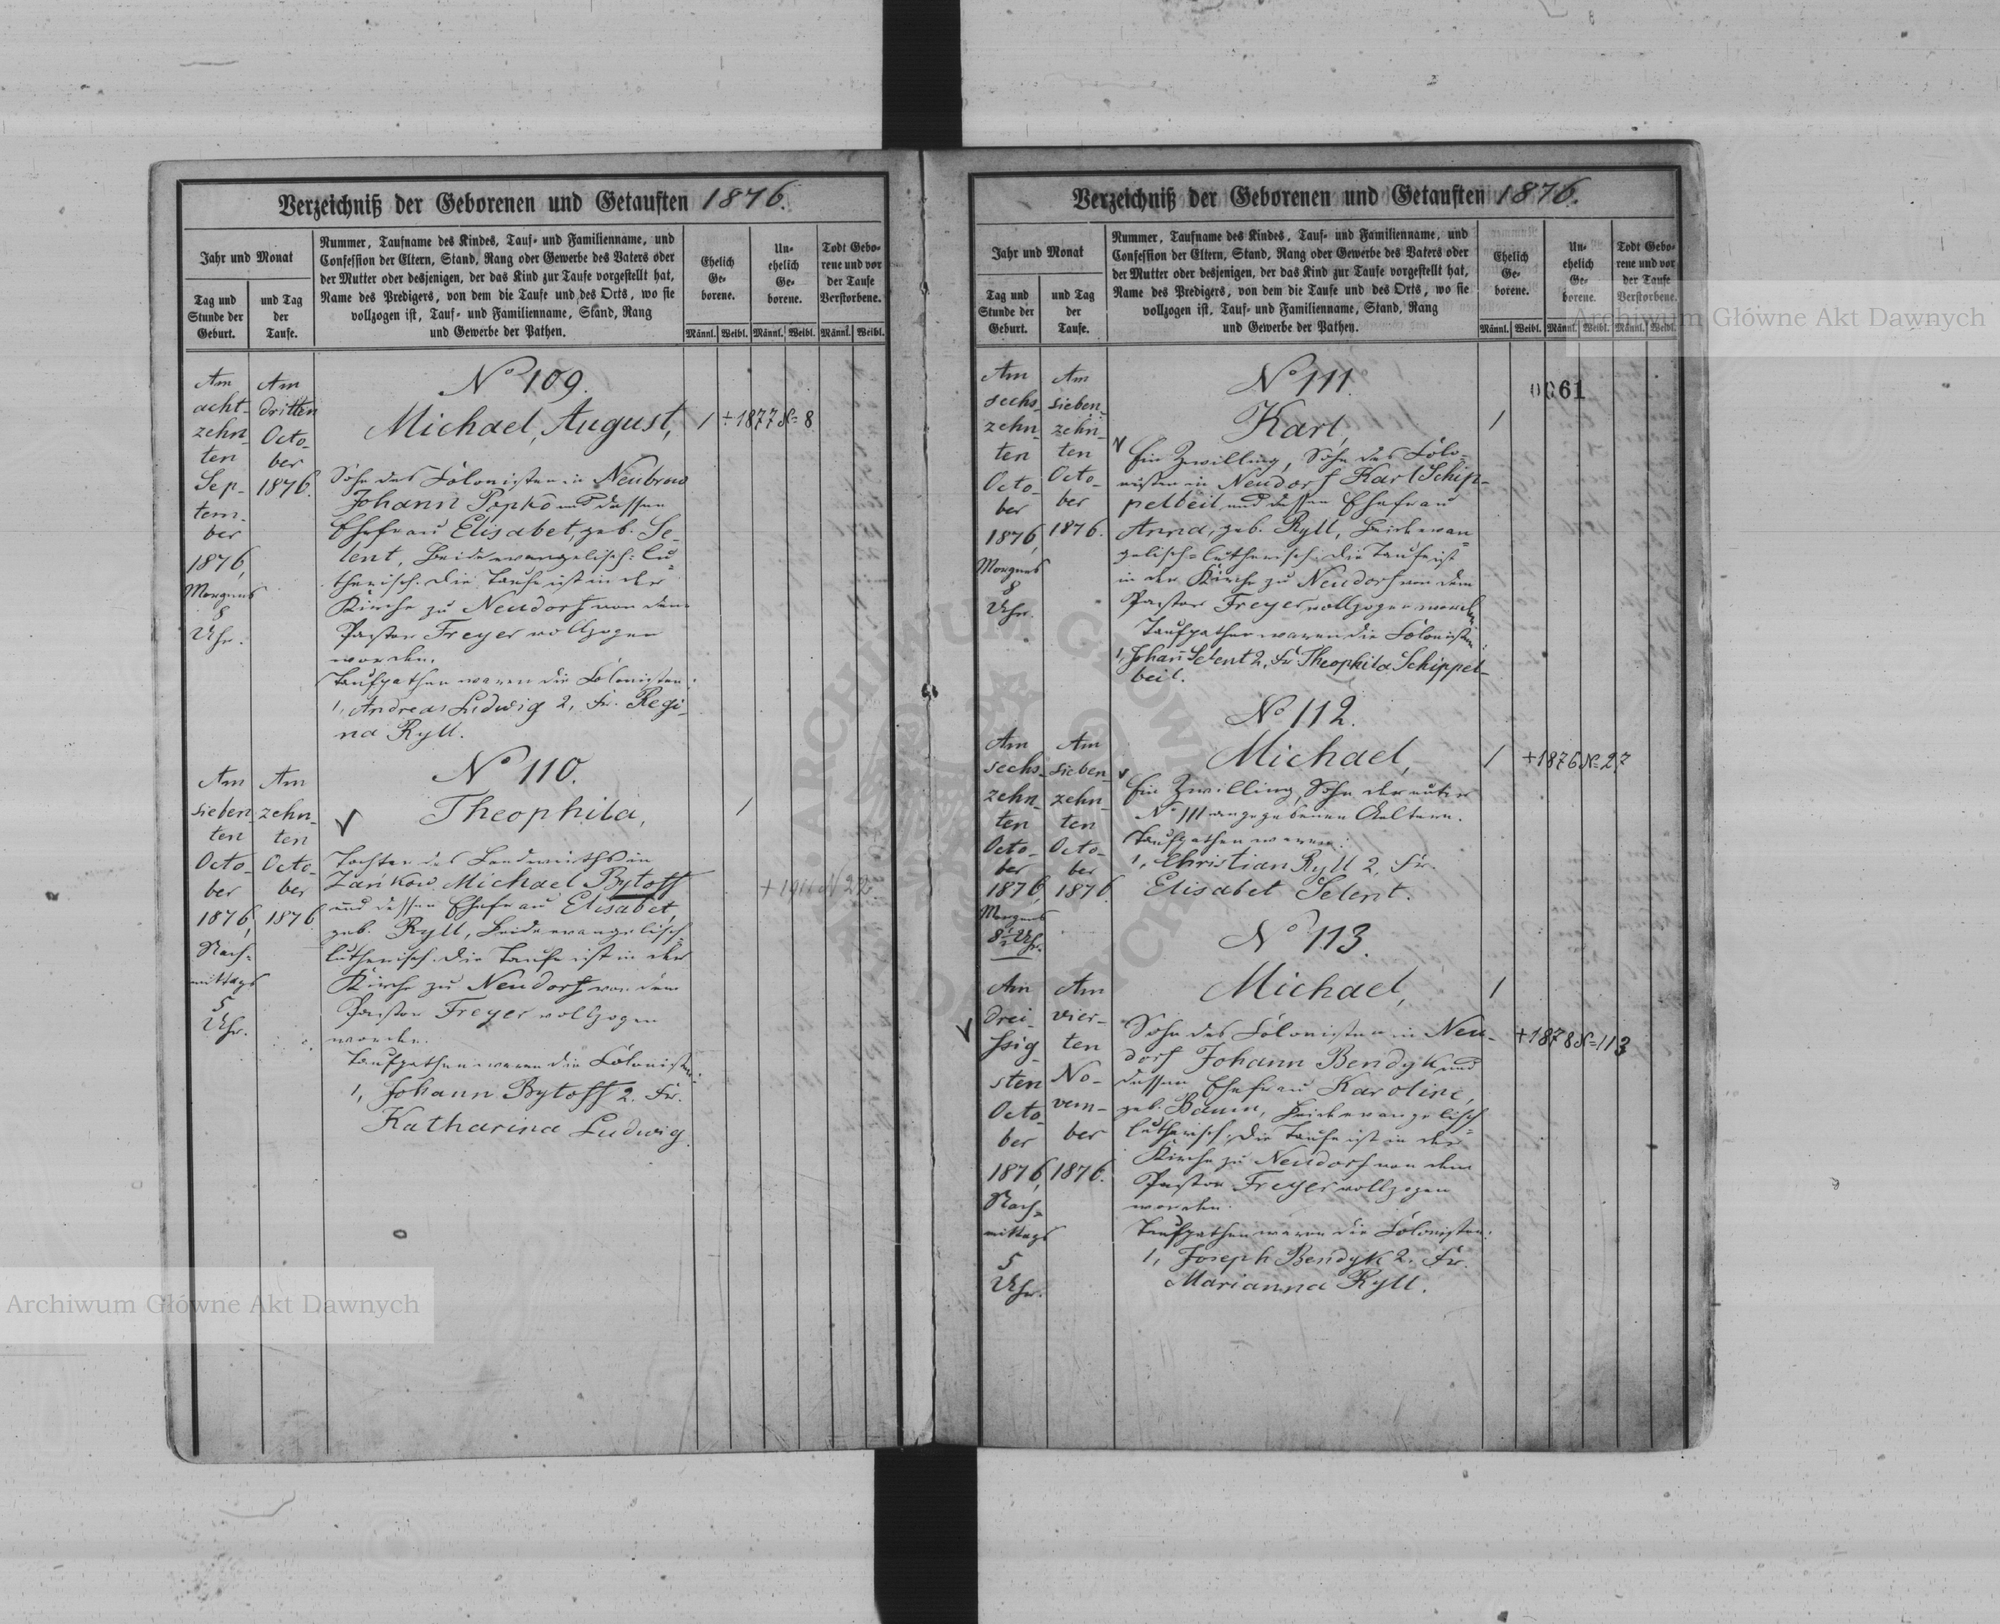 Verzeichniß der Geborenen und Getauften 1876.
Jahr und Monat
Tag und
Stunde der
Geburt.
und Tag
der
Taufe.
Nummer, Taufname des Kindes, Tauf- und Familienname, und
Confession der Eltern, Stand, Rang oder Gewerbe des Vaters oder
der Mutter oder desjenigen, der das Kind zur Taufe vorgestellt hat,
Name des Predigers, von dem die Taufe und des Orts, wo sie
vollzogen ist, Tauf- und Familienname, Stand, Rang
und Gewerbe der Pathen.
Ehelich
Ge-
borene.
Un-
ehelich
Ge-
borene.
Todt Gebo-
rene und vor
der Taufe
Verstorbene.
Männl. Weibl. Männl. Weibl. Männl. Weibl.
Am
acht-
zehn-
ten
Sep-
tem-
ber
1876,
Morgens
8
Uhr.
Am
dritten
Octo-
ber
1876.
No 109.
Michael, August,
1 + 1877 N= 8
Sohn des Colonisten in Neubruo
Johann Popko und dessen
Ehefrau Elisabet, geb. Se-
lent, beide evangelisch-lu-
therisch. Die Taufe ist in der
Kirche zu Neudorf von dem
Pastor Freyer vollzogen
worden.
Taufpathen waren die Colonisten:
1, Andreas Ludwig 2, Fr. Regi-
na Ryll.
Am
sieben
ten
Octo-
ber
1876,
Nach-
mittags
5
Uhr.
Am
zehn-
ten
Octo-
ber
1876
No 110.
Theophila,
1
Tochter des Landwirths in
Zańkow Michael Bytoff
und dessen Ehefrau Elisabet,
geb. Ryll, beide evangelisch-
lutherisch. Die Taufe ist in der
Kirche zu Neudorf von dem
Pastor Freyer vollzogen
worden.
Taufpathen waren die Colonisten:
1, Johann Bytoff 2. Fr.
Katharina Ludwig.
Verzeichniß der Geborenen und Getauften 1876.
Jahr und Monat
Tag und
Stunde der
Geburt.
und Tag
der
Taufe.
Nummer, Taufname des Kindes, Tauf- und Familienname, und
Confession der Eltern, Stand, Rang oder Gewerbe des Vaters oder
der Mutter oder desjenigen, der das Kind zur Taufe vorgestellt hat,
Name des Predigers, von dem die Taufe und des Orts, wo sie
vollzogen ist, Tauf- und Familienname, Stand, Rang
und Gewerbe der Pathen.
Ehelich
Ge-
borene.
Un-
ehelich
Ge-
borene.
Todt Gebo-
rene und vor
der Taufe
Verstorbene.
Männl. Weibl. Männl. Weibl. Männl. Weibl.
Archiwum Główne Akt Dawnych
0061
Am
sechs-
zehn-
ten
Octo-
ber
1876,
Morgens
8
Uhr.
Am
sieben-
zehn-
ten
Octo-
ber
1876.
No 111.
Karl,
1
Ein Zwilling, Sohn des Colo-
nisten in Neudorf Karl Schip-
pelbeil und dessen Ehefrau
Anna, geb. Ryll, beide evan-
gelisch-lutherisch. Die Taufe ist
in der Kirche zu Neudorf von dem
Pastor Freyer vollzogen worden
Taufpathen waren die Colonisten:
1, Johan Selent 2, Fr Theophila Schippel-
beil.
Am
sechs-
zehn-
ten
Octo-
ber
1876,
Morgens
8½ Uhr.
Am
sieben-
zehn-
ten
Octo-
ber
1876.
No 112.
Michael,
1 +1876 N= 27
Ein Zwilling, Sohn der unter
No 111 angegebenen Aeltern.
Taufpathen waren:
1, Christian Ryll 2, Fr.
Elisabet Selent.
Am
drei-
ssig-
sten
Octo-
ber
1876,
Nach-
mittags
5
Uhr.
Am
vier-
ten
No-
vem-
ber
1876.
No 113.
Michael,
1
+1878 N= 113
Sohn des Colonisten in Neu-
dorf Johann Bendyk und
dessen Ehefrau Karoline,
geb. Baum, beide evangelisch-
lutherisch. Die Taufe ist in der
Kirche zu Neudorf von dem
Pastor Freyer vollzogen
worden.
Taufpathen waren die Colonisten:
1, Joseph Bendyk 2, Fr.
Marianna Ryll.
Archiwum Główne Akt Dawnych